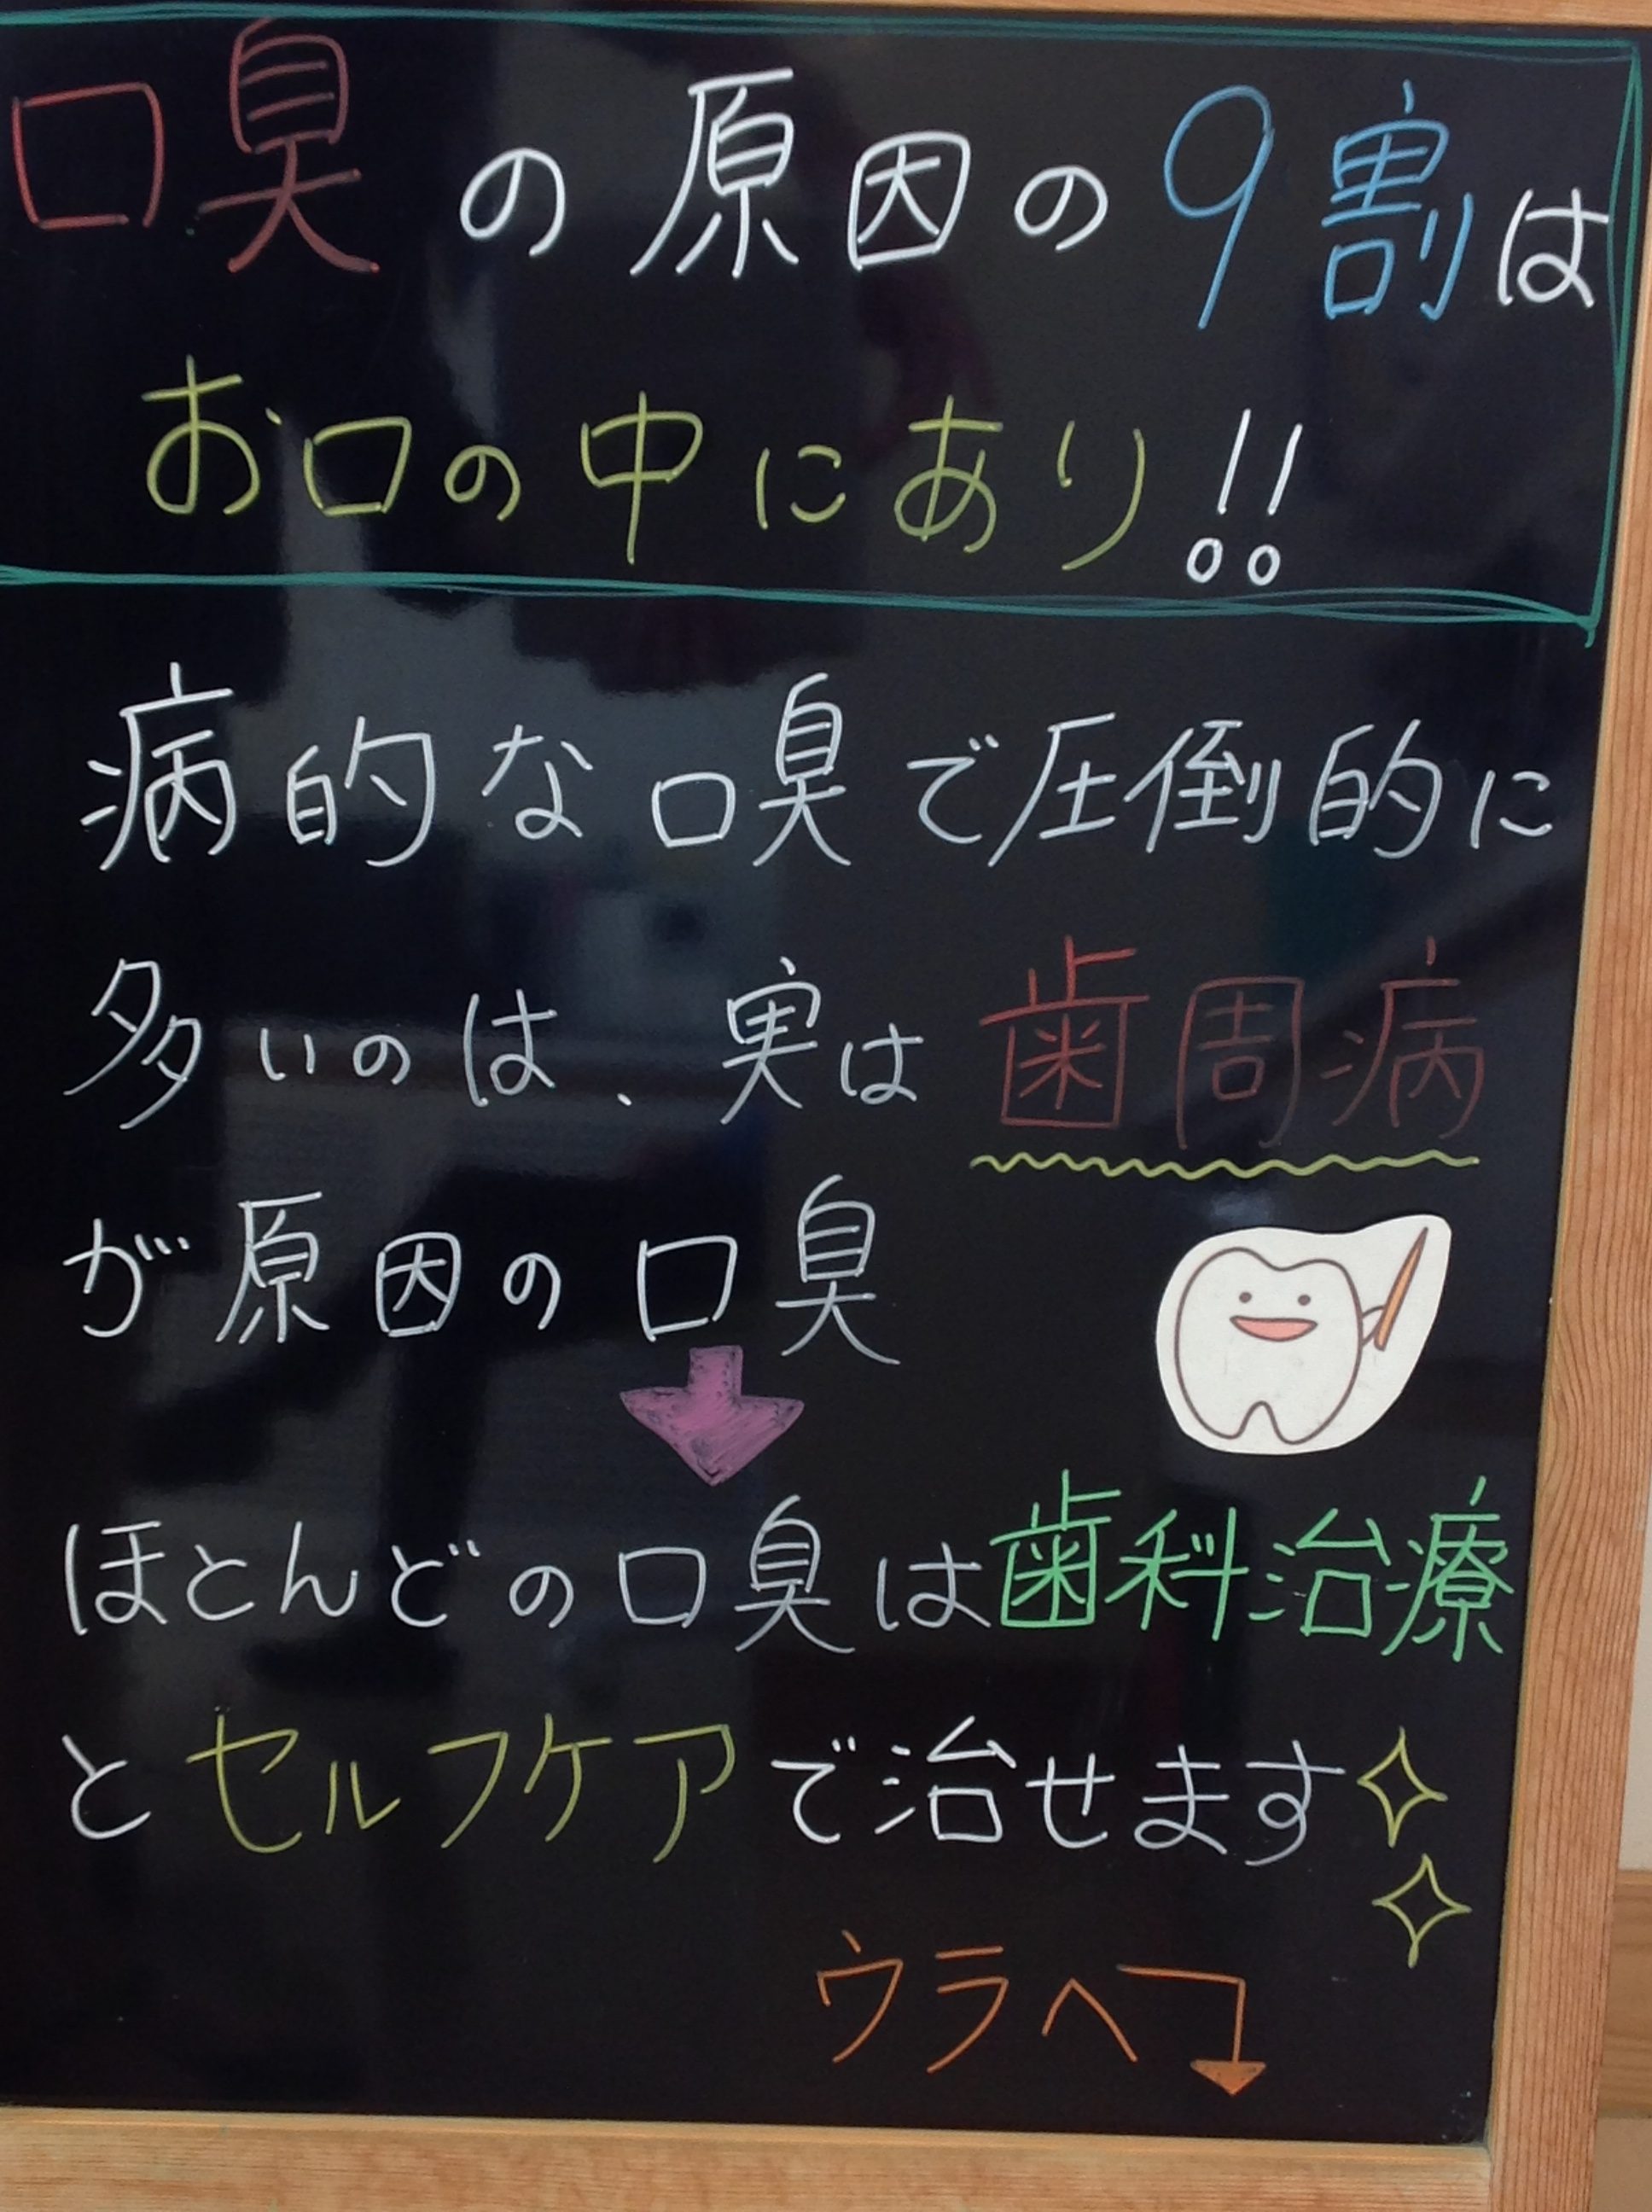 口臭の原因の9割は
お口の中にあり!!
病的な口臭で圧倒的に
多いのは、実は歯周病
が原因の口臭
ほとんどの口臭は歯科治療
とセルフケアで治せます
ウラへ